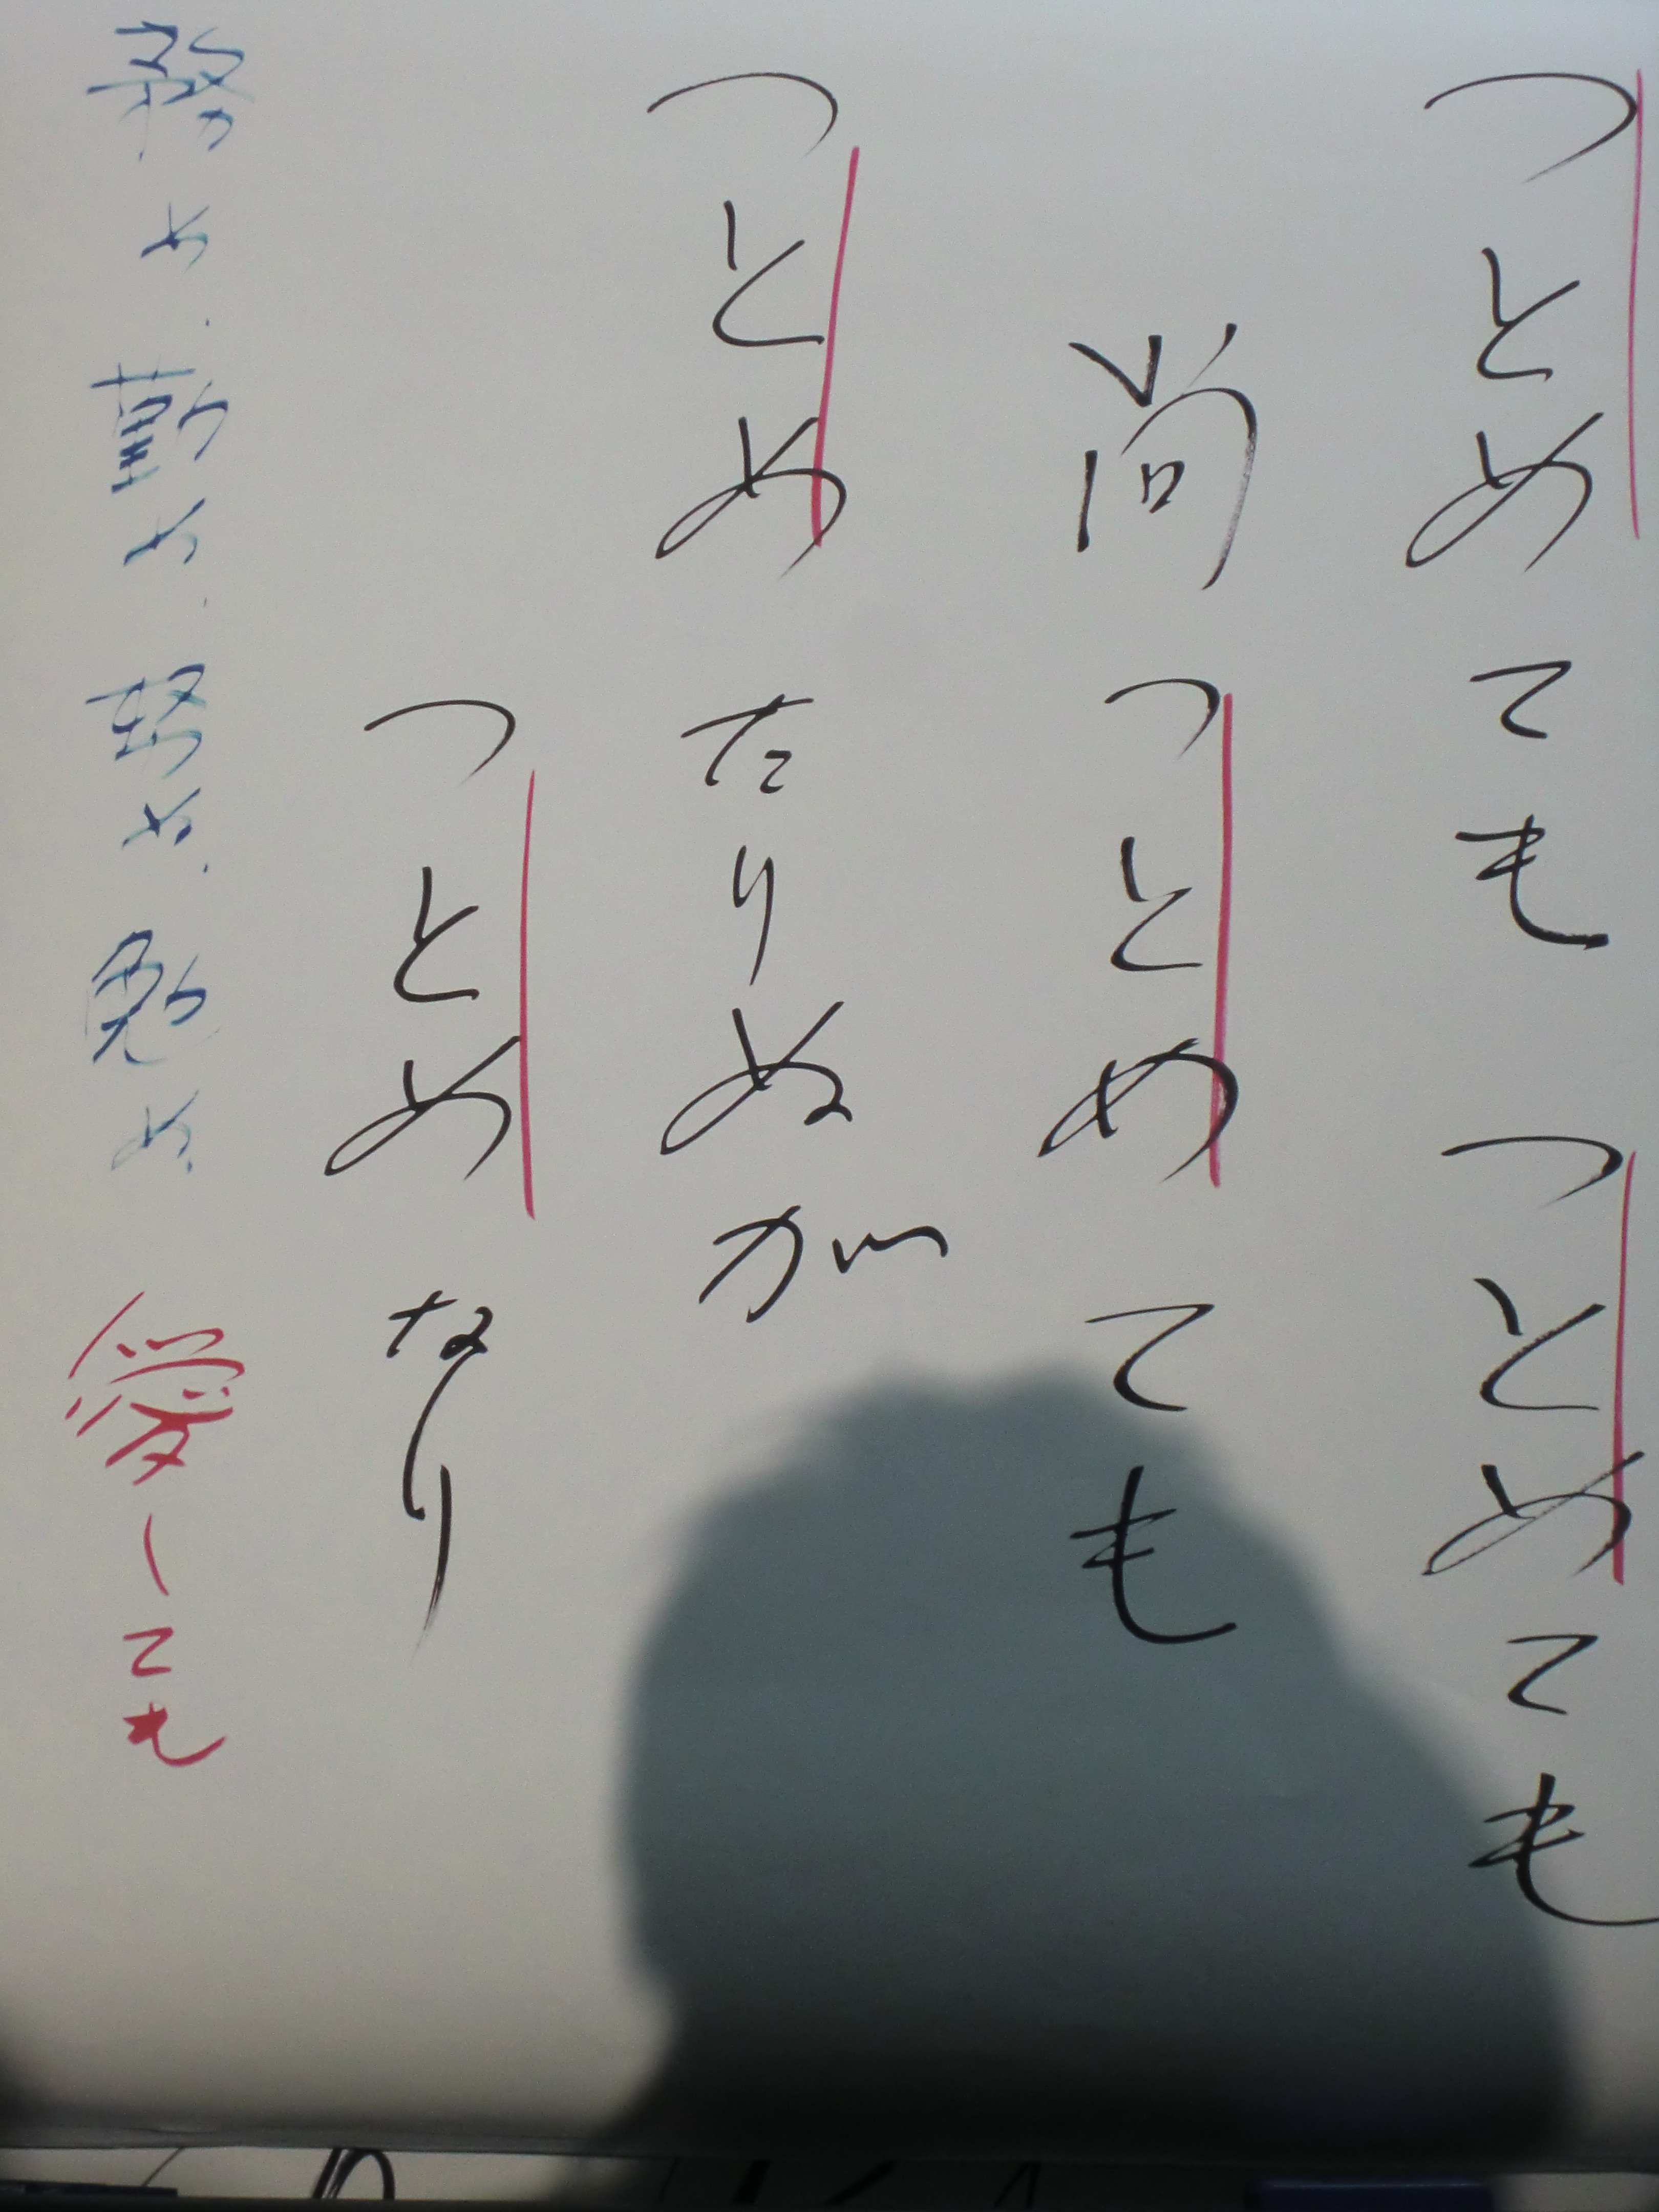 つとめても つとめても
尚 つとめても
つとめ たりぬが
つとめなり
務め.勤め.努め.勉め. 愛しても